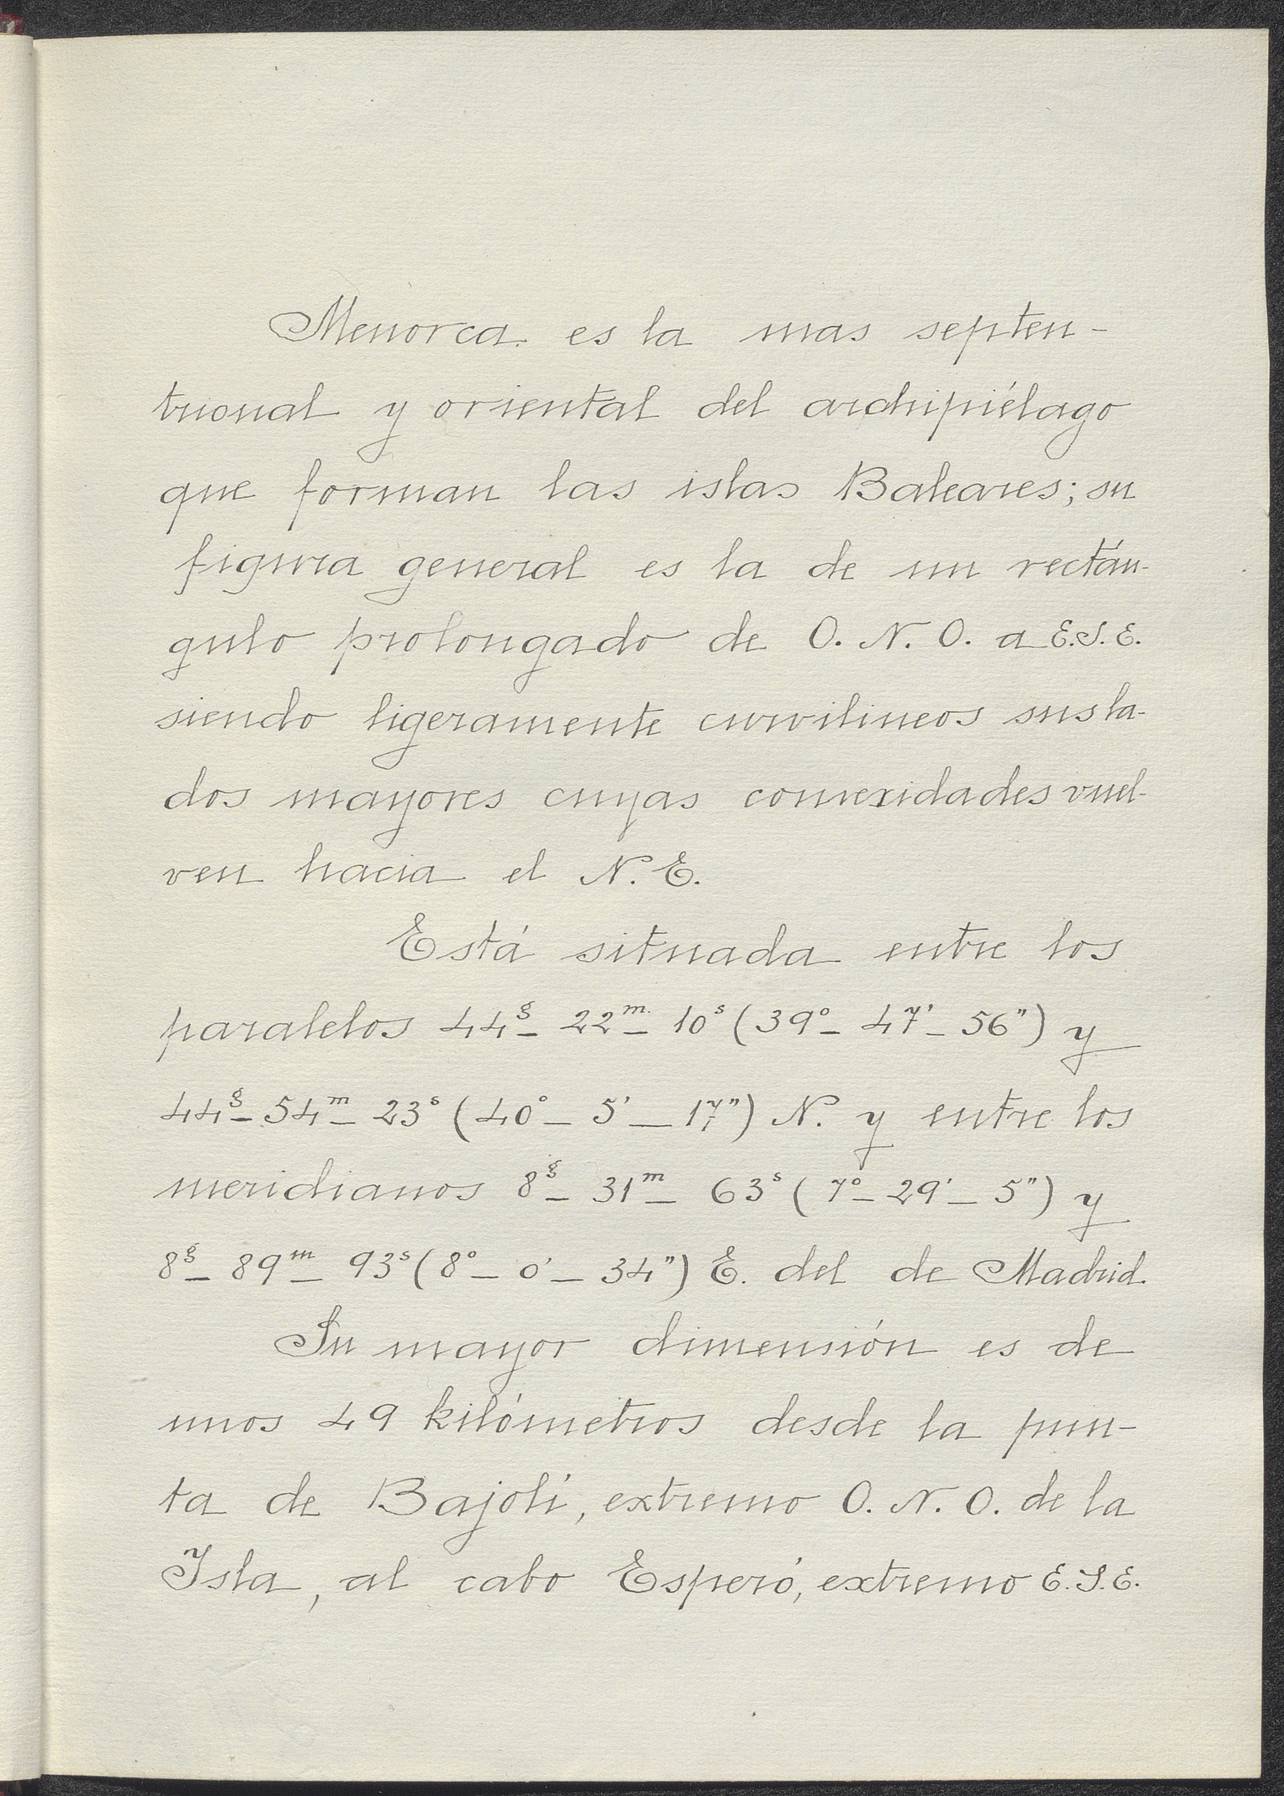 Menorca es la mas septen-
trional y oriental del archipiélago
que forman las islas Baleares; su
figura general es la de un rectán-
gulo prolongado de O. N. O. a E.S.E.
siendo ligeramente curvilineos sus la-
dos mayores cuyas convexidades vuel-
ven hacia el N.E.
Está situada entre los
paralelos 44ᵍ- 22ᵐ- 10ˢ (39°- 47'- 56") y
44ᵍ- 54ᵐ- 23ˢ (40°- 5'- 17") N. y entre los
meridianos 8ᵍ- 31ᵐ- 63ˢ (7°- 29'- 5") y
8ᵍ- 89ᵐ- 93ˢ (8°- 0'- 34") E. del de Madrid.
Su mayor dimensión es de
unos 49 kilómetros desde la pun-
ta de Bajolí, extremo O. N. O. de la
Isla, al cabo Esperó, extremo E.S.E.